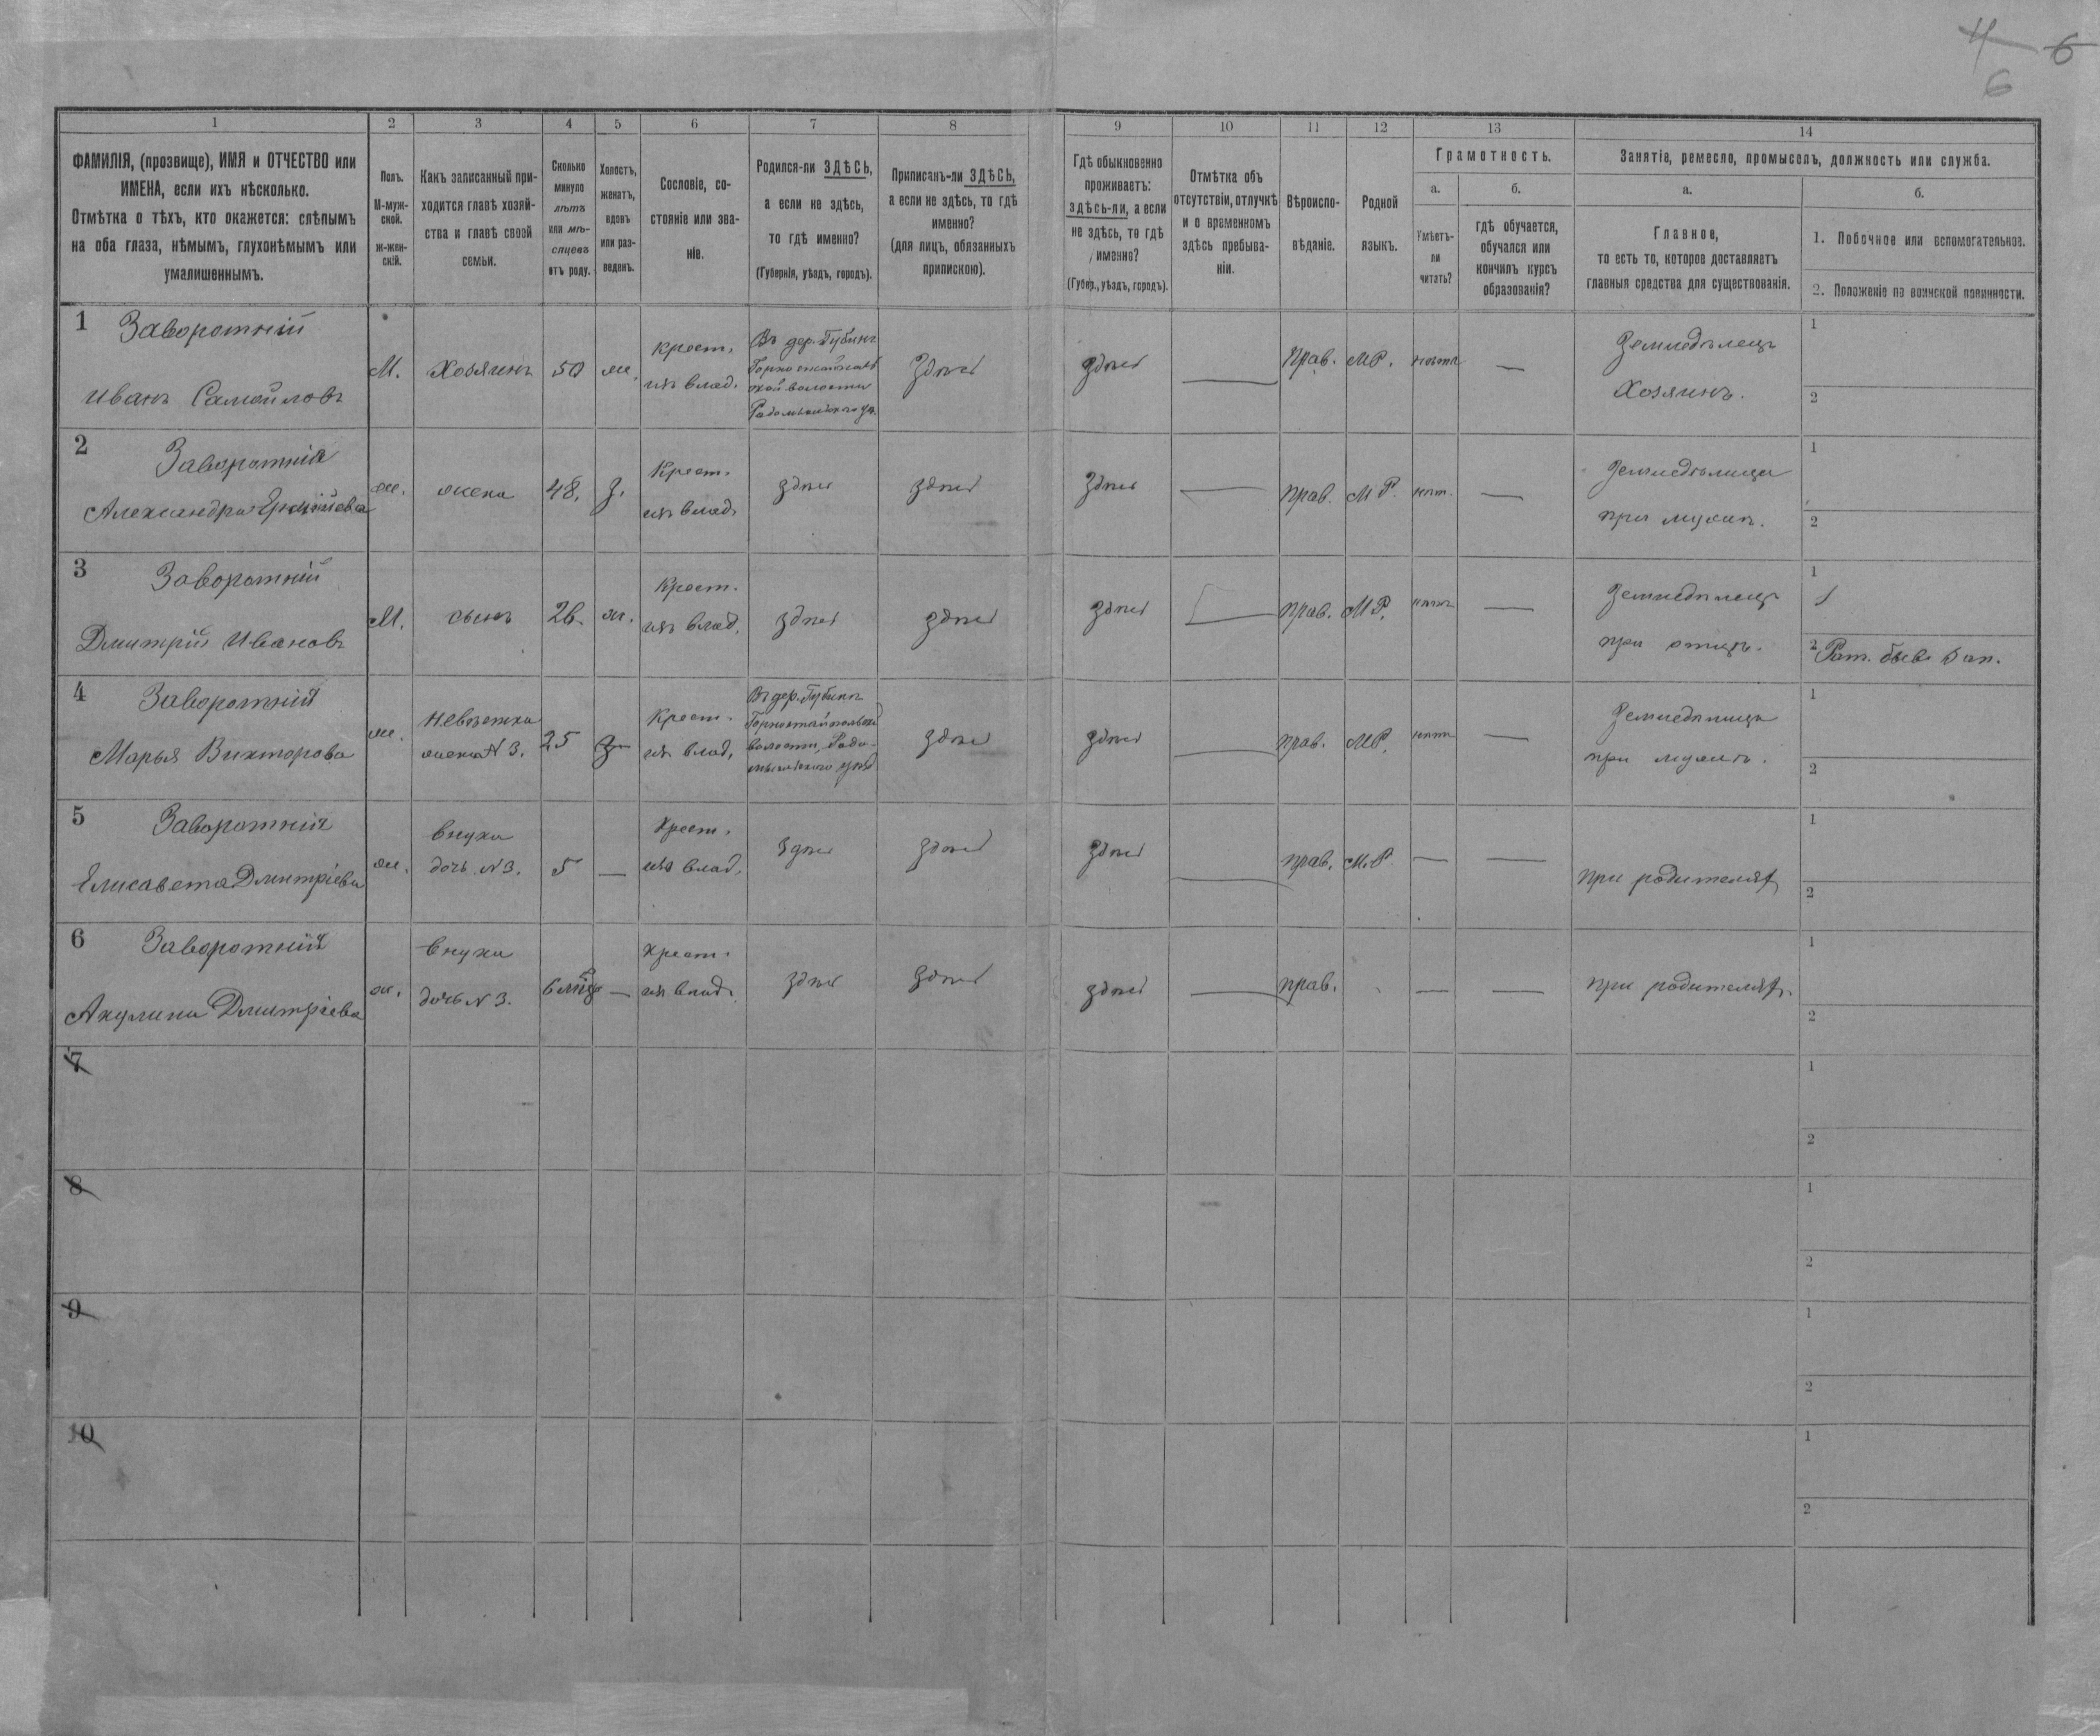 4 6
6
1 2 3 4 5 6 7 8 9 10 11 12 13 14
ФАМИЛІЯ, (прозвище), ИМЯ и ОТЧЕСТВО или
ИМЕНА, если ихъ нѣсколько.
Отмѣтка о тѣхъ, кто окажется: слѣпымъ
на оба глаза, нѣмымъ, глухонѣмымъ или
умалишеннымъ.
Полъ.
М-муж-
ской.
ж-жен-
скій.
Какъ записанный при-
ходится главѣ хозяй-
ства и главѣ своей
семьи.
Сколько
минуло
лѣтъ
или мѣ-
сяцевъ
отъ роду.
Холостъ,
женатъ,
вдовъ
или раз-
веденъ.
Сословіе, со-
стояніе или зва-
ніе.
Родился-ли ЗДѢСЬ,
а если не здѣсь,
то гдѣ именно?
(Губернія, уѣздъ, городъ).
Приписанъ-ли ЗДѢСЬ,
а если не здѣсь, то гдѣ
именно?
(для лицъ, обязанныхъ
припискою).
Гдѣ обыкновенно
проживаетъ:
здѣсь-ли, а если
не здѣсь, то гдѣ
именно?
(Губер., уѣздъ, городъ).
Отмѣтка объ
отсутствіи, отлучкѣ
и о временномъ
здѣсь пребыва-
ніи.
Вѣроиспо-
вѣданіе.
Родной
языкъ.
Грамотность.
а.
Умѣетъ-
ли
читать?
б.
гдѣ обучается,
обучался или
кончилъ курсъ
образованія?
Занятіе, ремесло, промыселъ, должность или служба.
а.
Главное,
то есть то, которое доставляетъ
главныя средства для существованія.
б.
1. Побочное или вспомогательное.
2. Положеніе по воинской повинности.
1 Заворотній
Иванъ Самойловъ
М.
Хозяинъ
50
ж.
крест.
изъ влад.
Въ дер. Губинъ
Горностайполь
ской волости
Радомысльского уѣ.
здѣсь
здѣсь
—
Прав.
МР.
нѣтъ
—
Земледѣлецъ
Хозяинъ.
1
2
2 Заворотнія
Александра
ж.
жена
48.
з.
Крест.
изъ влад.
здѣсь
здѣсь
здѣсь
—
прав.
МР.
нѣт.
—
Земледѣлица
при мужѣ.
1
2
3 Заворотній
Дмитрій Ивановъ
М.
сынъ
26.
ж.
Крест.
изъ влад.
здѣсь
здѣсь
здѣсь
—
прав.
МР.
нѣтъ
—
Земледѣлецъ
при отцѣ.
1
2 Рат.
4 Заворотнія
Марья Викторова
ж.
Невѣстка
жена N 3.
25
з
Крест.
изъ влад.
Въ дер. Губинъ
Горностайпольской
волости, Радо-
мысльского уѣзд
здѣсь
здѣсь
—
прав.
МР.
нѣтъ
—
Земледѣлица
при мужѣ.
1
2
5 Заворотнія
Елисавета Дмитріева
ж.
внука
дочь N 3.
5
—
Крест.
изъ влад.
здѣсь
здѣсь
здѣсь
—
прав.
М.Р.
—
—
при родителях
1
2
6 Заворотнія
Акулина Дмитріева
ж.
внука
дочь N 3.
6 мѣс
—
Крест.
изъ влад.
здѣсь
здѣсь
здѣсь
—
прав.
—
—
при родителях.
1
2
7
1
2
8
1
2
9
1
2
10
1
2